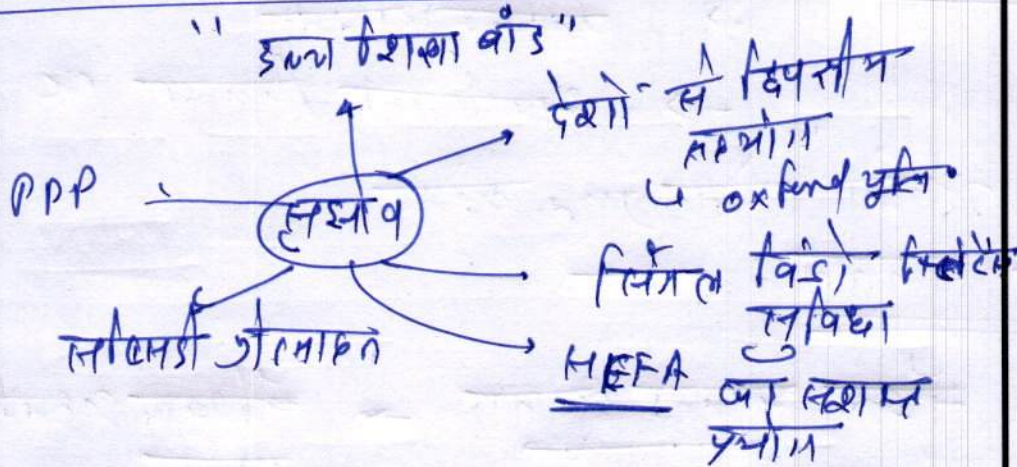 "उच्च शिक्षा बांड"
देशों से द्विपक्षीय
सहयोग
↳ oxford यूनि॰
PPP
सुझाव
सिंगल विंडो
सुविधा
सब्सिडी प्रोत्साहन
HEFA का सशक्त
प्रयोग